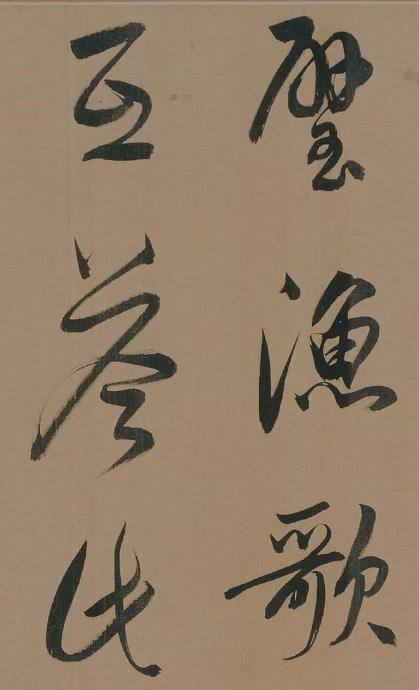 璧漁歌
互答此